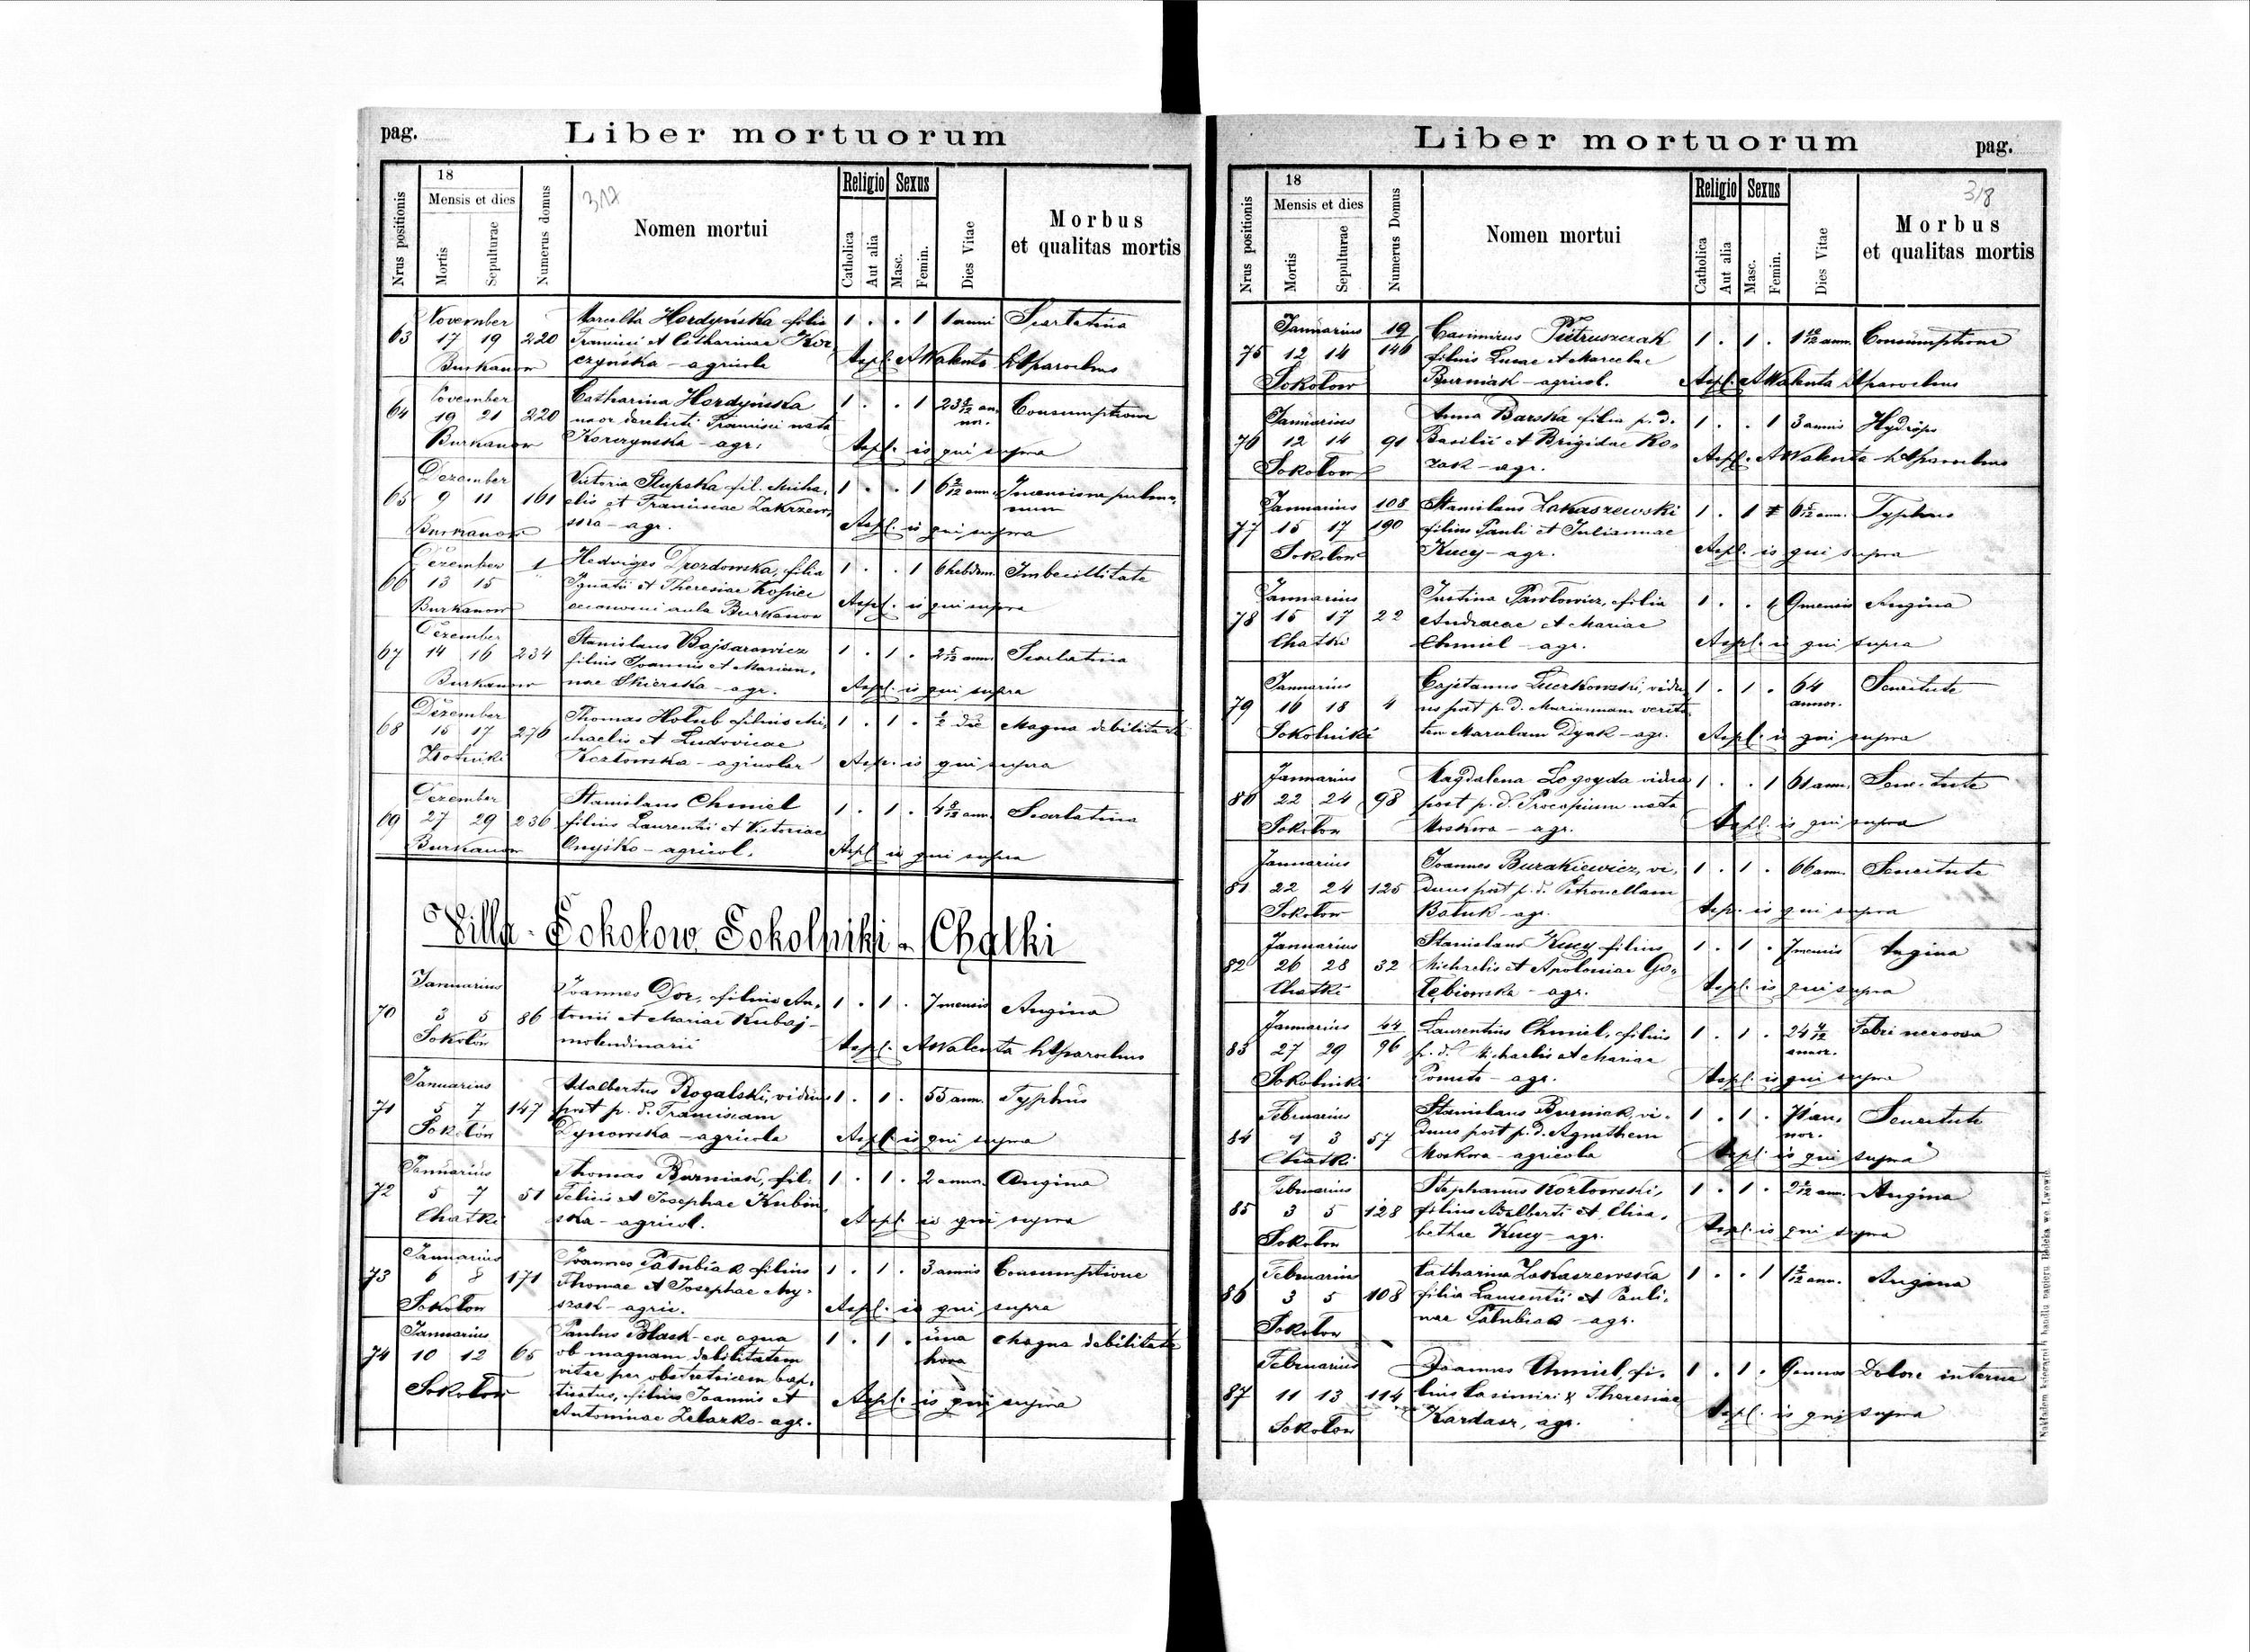 pag.
Liber mortuorum
Nrus positionis
18
Mensis et dies
Mortis
Sepulturae
Numerus domus
317
Nomen mortui
Religio
Catholica
Aut alia
Sexus
Masc.
Femin.
Dies Vitae
Morbus
et qualitas mortis
November
63 17 19 220
Burkanow
Marcella Hordyńska filia
Francisci et Catharinae Kor
czyńska - agricola
1 . . 1 1 anni Scarlatina
Aspl. AWalenta LAparochus
November
64 19 21 220
Burkanow
Catharina Hordyńska
uxor derelicti Francisci nata
Korczynska - agr.
1 . . 1 23 4/12 an
nor. Consumptione
Aspl. is qui supra
Dezember
65 9 11 161
Burkanow
Victoria Słupska fil. Micha,
elis et Franciscae Zakrzew
ska - agr.
1 . . 1 6 2/12 ann.
Aspl. is qui supra
Dezember
66 13 15 1
Burkanow
Hedviges Drozdowska, filia
Ignatii et Theresiae Kopiec
oeconomi aula Burkanow
1 . . 1 6 hebdom. Imbecillitate
Aspl. is qui supra
Dezember
67 14 16 234
Burkanow
Stanislaus Bajsarowicz
filius Joannis et Marian,
nae Skierska - agr.
1 . 1 . 2 5/12 ann. Scarlatina
Aspl. is qui supra
Dezember
68 15 17 276
Złotniki
Thomas Hołub filius Mi,
chaelis et Ludovicae
Kozłowska - agricolar
1 . 1 . 1/2 die Magna debilitate
Aspl. is qui supra
Dezember
69 27 29 236
Burkanow
Stanislaus Chmiel
filius Laurentii et Victoriae
Onyśko - agricol.
1 . 1 . 4 8/12 ann. Scarlatina
Aspl is qui supra
Villa - Sokołow Sokolniki - Chatki
Januarius
70 3 5 86
Sokołow
Joannes Dor, filius An,
tonii et Mariae Kubaj -
molendinarii
1 . 1 . 7 mensis Angina
Aspl. AWalenta LAparochus
Januarius
71 5 7 147
Sokołow
Adalbertus Rogalski, viduus
post p. d. Franciscam
Dynowska - agricola
1 . 1 . 55 ann. Typhus
Aspl. is qui supra
Januarius
72 5 7 51
Chatki
Thomas Burniak, fil.
Felicis et Josephae Kubin
ska - agricol.
1 . 1 . 2 annor. Angina
Aspl. is qui supra
Januarius
73 6 8 171
Sokołow
Joannes Pałubiak filius
Thomae et Josephae My,
szak - agric.
1 . 1 . 3 annis Consumptione
Aspl. is qui supra
Januarius
74 10 12 65
Sokołow
Paulus Blask - ex aqua
ob magnam debilitatem
vitae per obstetricem bap,
tisatus, filius Joannis et
Antoninae Zelarko - agr.
1 . 1 . una
hora Magna debilitate
Aspl. is qui supra
Liber mortuorum
pag.
Nrus positionis
18
Mensis et dies
Mortis
Sepulturae
Numerus Domus
Nomen mortui
Religio
Catholica
Aut alia
Sexus
Masc.
Femin.
Dies Vitae
318
Morbus
et qualitas mortis
Januarius
75 12 14 19/146
Sokołow
Casimirus Pietruszczak
filius Lucae et Marcelae
Burniak - agricol.
1 . 1 . 1 10/12 ann. Consumptione
Aspl. AWalenta LAparochus
Januarius
76 12 14 91
Sokołow
Anna Barska filia p. d.
Basilii et Brigidae Ko,
zak - agr.
1 . . 1 3 annis Hydrops
Aspl. AWalenta LAparochus
Januarius
77 15 17 108/190
Sokołow
Stanislaus Łakaszewski
filius Pauli et Juliannae
Kucy - agr.
1 . 1 6 5/12 ann. Typhus
Aspl. is qui supra
Januarius
78 15 17 22
Chatki
Justina Pawłowicz, filia
Andreae et Mariae
Chmiel - agr.
1 . . 1 9 mensis Angina
Aspl. is qui supra
Januarius
79 16 18 4
Sokolniki
Cajetanus Luczkowski, vidu
us post p. d. Mariannam
Dyak - agr.
1 . 1 . 64
annor. Senectute
Aspl. is qui supra
Januarius
80 22 24 98
Sokołow
Magdalena Łogoyda vidua
post p. d. Procopium nata
Moskwa - agr.
1 . . 1 61 ann. Senectute
Aspl. is qui supra
Januarius
81 22 24 125
Sokołow
Joannes Burakiewicz, vi,
duus post p. d. Petronellam
Bałuk - agr.
1 . 1 . 66 ann. Senectute
Asp. is qui supra
Januarius
82 26 28 32
Chatki
Stanislaus Kucy filius
Michaelis et Apoloniae Go,
łębiowska - agr.
1 . 1 . 7 mensis Angina
Aspl. is qui supra
Januarius
83 27 29 44/96
Sokolniki
Laurentius Chmiel, filius
p. d. Michaelis et Mariae
agr.
1 . 1 . 24 4/12
annor. Febri nervosa
Aspl. is qui supra
Februarius
84 1 3 57
Chatki
Stanislaus Burniak, vi,
duus post p. d. Agnethem
Moskwa - agricola
1 . 1 . 71 an,
nor. Senectute
Aspl. is qui supra
Februarius
85 3 5 128
Sokołow
Stephanus Kozłowski,
filius Adalberti et Elisa,
bethae Kucy - agr.
1 . 1 . 2 2/12 ann. Angina
Aspl. is qui supra
Februarius
86 3 5 108
Sokołow
Catharina Łakaszewska
filia Laurentii et Pauli,
nae Pałubiak - agr.
1 . . 1 1 2/12 ann. Angina
Februarius
87 11 13 114
Sokołow
Joannes Chmiel, fi,
lius Casimiri & Theresiae
Kardasz, agr.
1 . 1 . 9 annos Dolore interna
Aspl. is qui supra
Nakładem księgarni i handlu papieru Bodeka we Lwowie